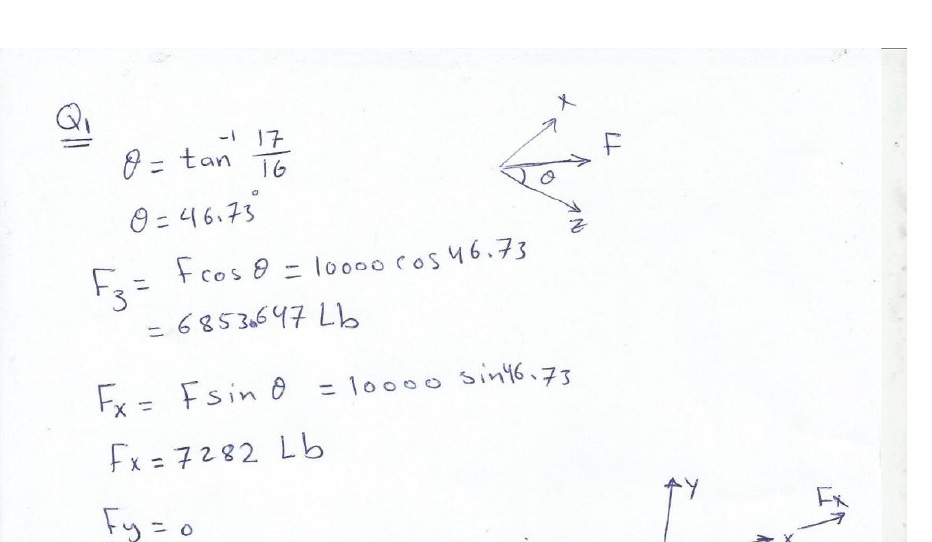 Q1
θ = tan⁻¹ 17/16
θ = 46.73°
F3 = F cos θ = 10000 cos 46.73
= 6853.647 Lb
Fx = F sin θ = 10000 sin 46.73
Fx = 7282 Lb
Fy = 0
x
F
θ
z
Y
Fx
x